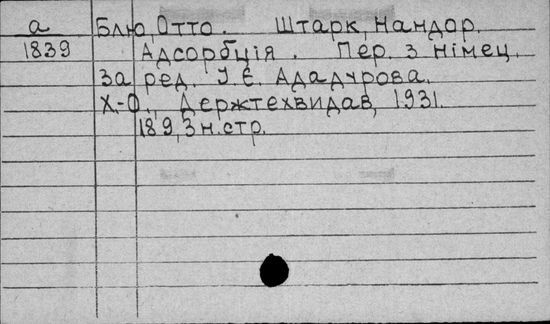 а Блю, Отто. Штарк, Нандор.
1839 Адсорбція. Пер. з німец.
за ред. І. Є. Ададурова.
Х.-О., Держтехвидав, 1931.
189, 3 н. стр.